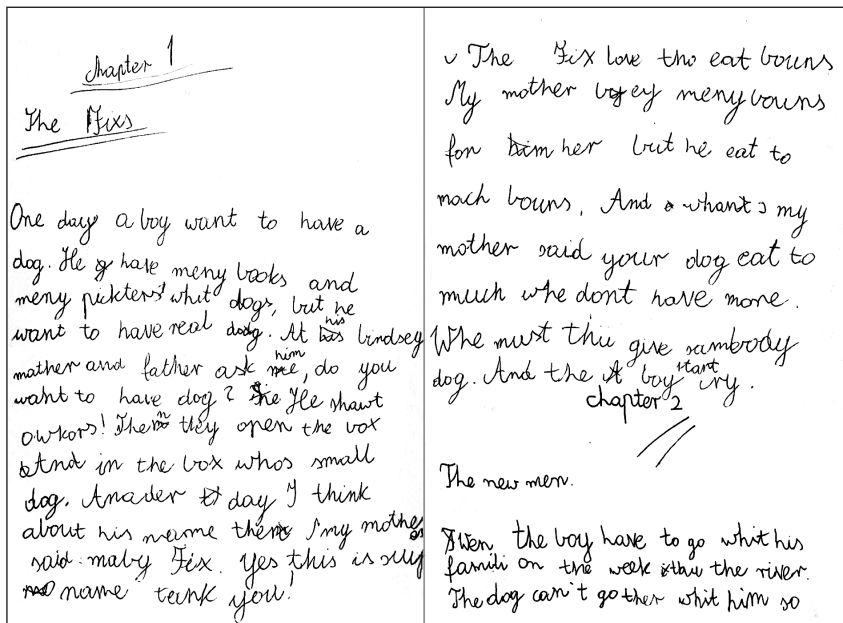 chapter 1
The Fixs
One day a boy want to have a
dog. He have meny books and
meny pickters whit dogs, but he
want to have real dog. At his birdsey
mother and father ask him, do you
want to have dog? He shawt
owkors! Then they open the box
And in the box whos small
dog. Anader day I think
about his name then my mother
said maby Fix. Yes this is my
name tenk you!
The Fix love tho eat bouns
My mother bey meny bouns
for her but he eat to
mach bouns, And whants my
mother said your dog eat to
much whe dont have more.
Whe must thu give sambody
dog. And the boy start cry.
chapter 2
The new men.
Wen the boy have to go whit his
famili on the week thu the river.
The dog can't go ther whit him so